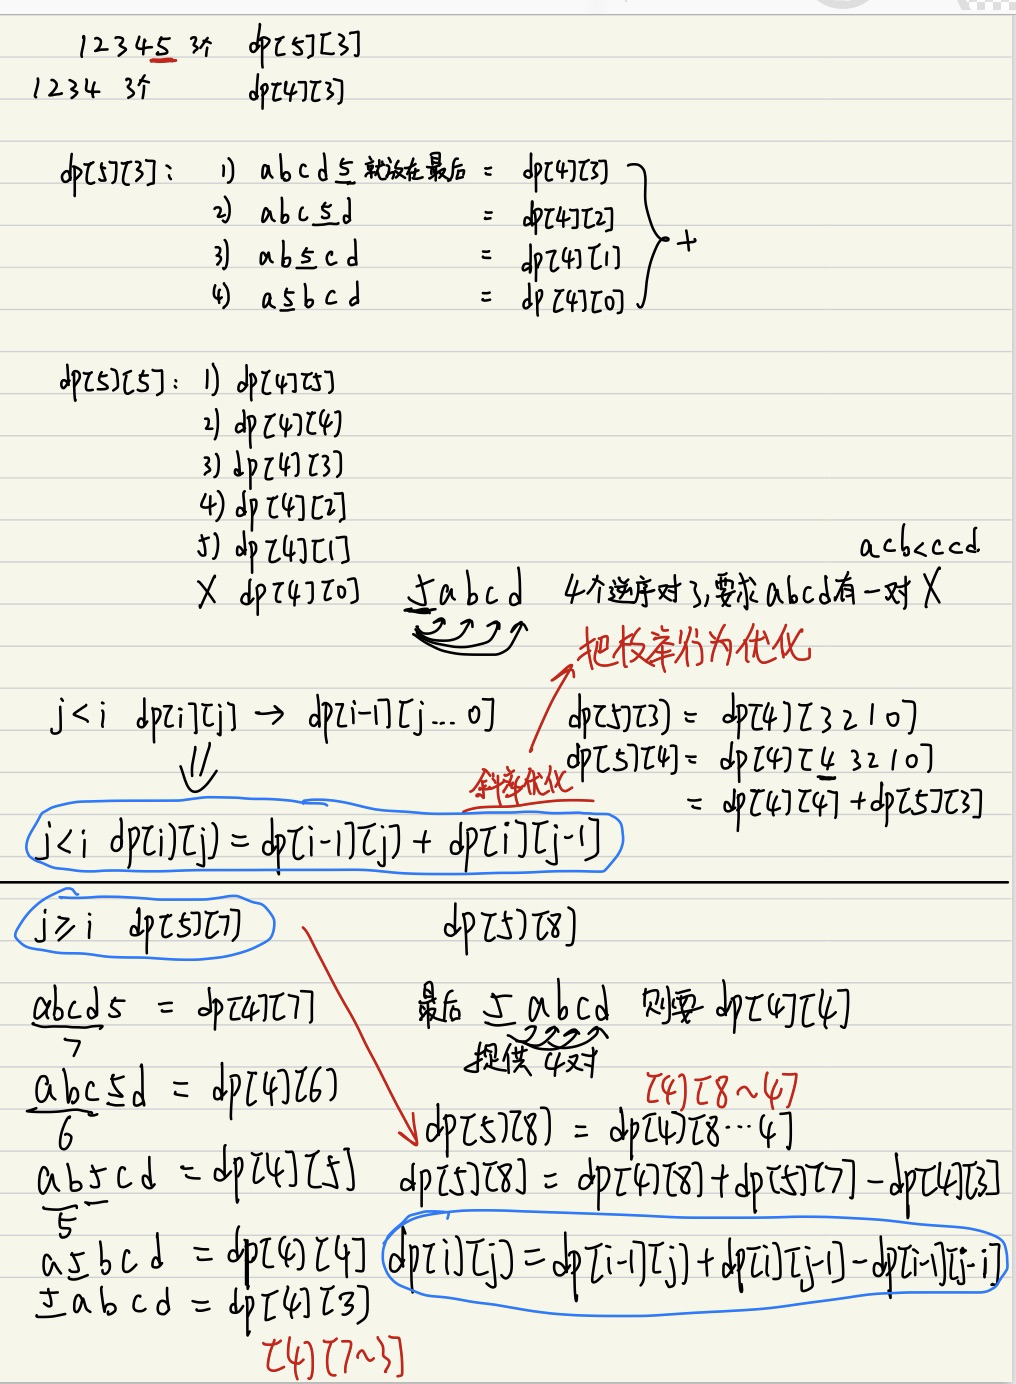 12345 3个 dp[5][3]
1234 3个 dp[4][3]
dp[5][3]: 1) abcd5 就放在最后 = dp[4][3]
2) abc5d = dp[4][2]
3) ab5cd = dp[4][1]
4) a5bcd = dp[4][0]
+
dp[5][5]: 1) dp[4][5]
2) dp[4][4]
3) dp[4][3]
4) dp[4][2]
5) dp[4][1]
acb<ccd
X dp[4][0] 5abcd 4个逆序对了,要求abcd有一对 X
把枚举行为优化
j<i dp[i][j] → dp[i-1][j...0]
dp[5][3] = dp[4][3 2 1 0]
dp[5][4] = dp[4][4 3 2 1 0]
= dp[4][4] + dp[5][3]
斜率优化
j<i dp[i][j] = dp[i-1][j] + dp[i][j-1]
j≥i dp[5][7]
abcd5 = dp[4][7]
7
abc5d = dp[4][6]
6
ab5cd = dp[4][5]
5
a5bcd = dp[4][4]
5abcd = dp[4][3]
[4][7~3]
dp[5][8]
最后 5abcd 则要 dp[4][4]
提供 4对
[4][8~4]
dp[5][8] = dp[4][8...4]
dp[5][8] = dp[4][8] + dp[5][7] - dp[4][3]
dp[i][j] = dp[i-1][j] + dp[i][j-1] - dp[i-1][j-i]